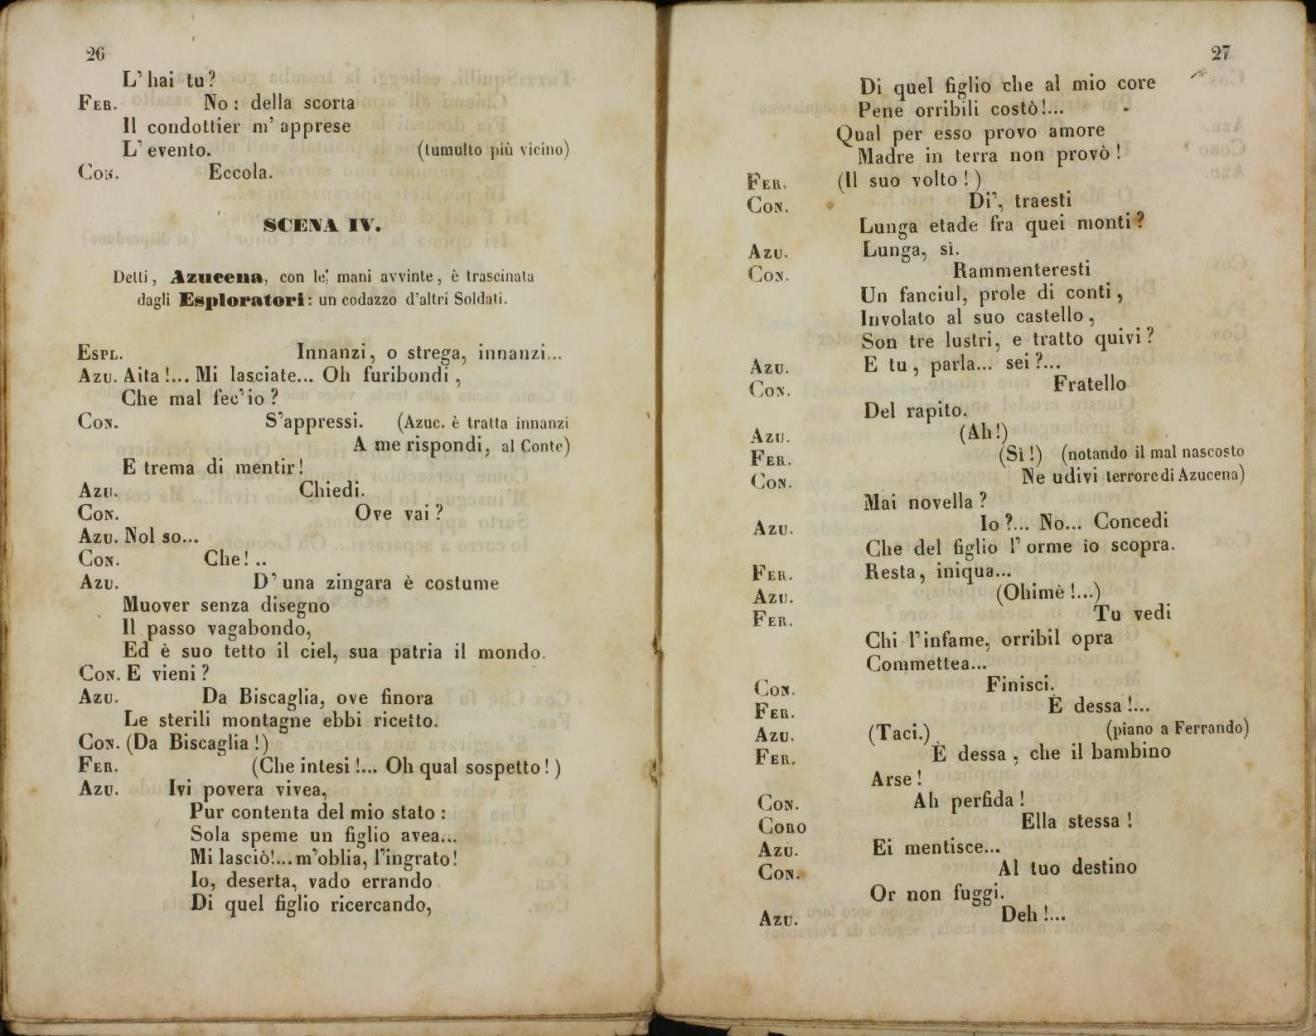 26
L' hai tu?
FER. No: della scorta
Il condottier m' apprese
L' evento. (tumulto più vicino)
CON. Eccola.
SCENA IV.
Detti, Azucena, con le mani avvinte, è trascinata
dagli Esploratori: un codazzo d'altri Soldati.
ESPL. Innanzi, o strega, innanzi...
AZU. Aita!... Mi lasciate... Oh furibondi,
Che mal fec'io?
CON. S'appressi. (Azuc. è tratta innanzi
A me rispondi, al Conte)
E trema di mentir!
AZU. Chiedi.
CON. Ove vai?
AZU. Nol so...
CON. Che!..
AZU. D' una zingara è costume
Muover senza disegno
Il passo vagabondo,
Ed è suo tetto il ciel, sua patria il mondo.
CON. E vieni?
AZU. Da Biscaglia, ove finora
Le sterili montagne ebbi ricetto.
CON. (Da Biscaglia!)
FER. (Che intesi!... Oh qual sospetto!)
AZU. Ivi povera vivea,
Pur contenta del mio stato:
Sola speme un figlio avea...
Mi lasciò!...m'oblia, l'ingrato!
Io, deserta, vado errando
Di quel figlio ricercando,
27
Di quel figlio che al mio core
Pene orribili costò!...
Qual per esso provo amore
Madre in terra non provò!
FER. (Il suo volto!)
CON. Di', traesti
Lunga etade fra quei monti?
AZU. Lunga, sì.
CON. Rammenteresti
Un fanciul, prole di conti,
Involato al suo castello,
Son tre lustri, e tratto quivi?
AZU. E tu, parla... sei?...
CON. Fratello
Del rapito.
AZU. (Ah!)
FER. (Sì!) (notando il mal nascosto
CON. Ne udivi terrore di Azucena)
Mai novella?
AZU. Io?... No... Concedi
Che del figlio l' orme io scopra.
FER. Resta, iniqua...
AZU. (Ohimè!...)
FER. Tu vedi
Chi l'infame, orribil opra
Commettea...
CON. Finisci.
FER. È dessa!...
AZU. (Taci.) (piano a Ferrando)
FER. È dessa, che il bambino
Arse!
CON. Ah perfida!
CORO Ella stessa!
AZU. Ei mentisce...
CON. Al tuo destino
Or non fuggi.
AZU. Deh!...